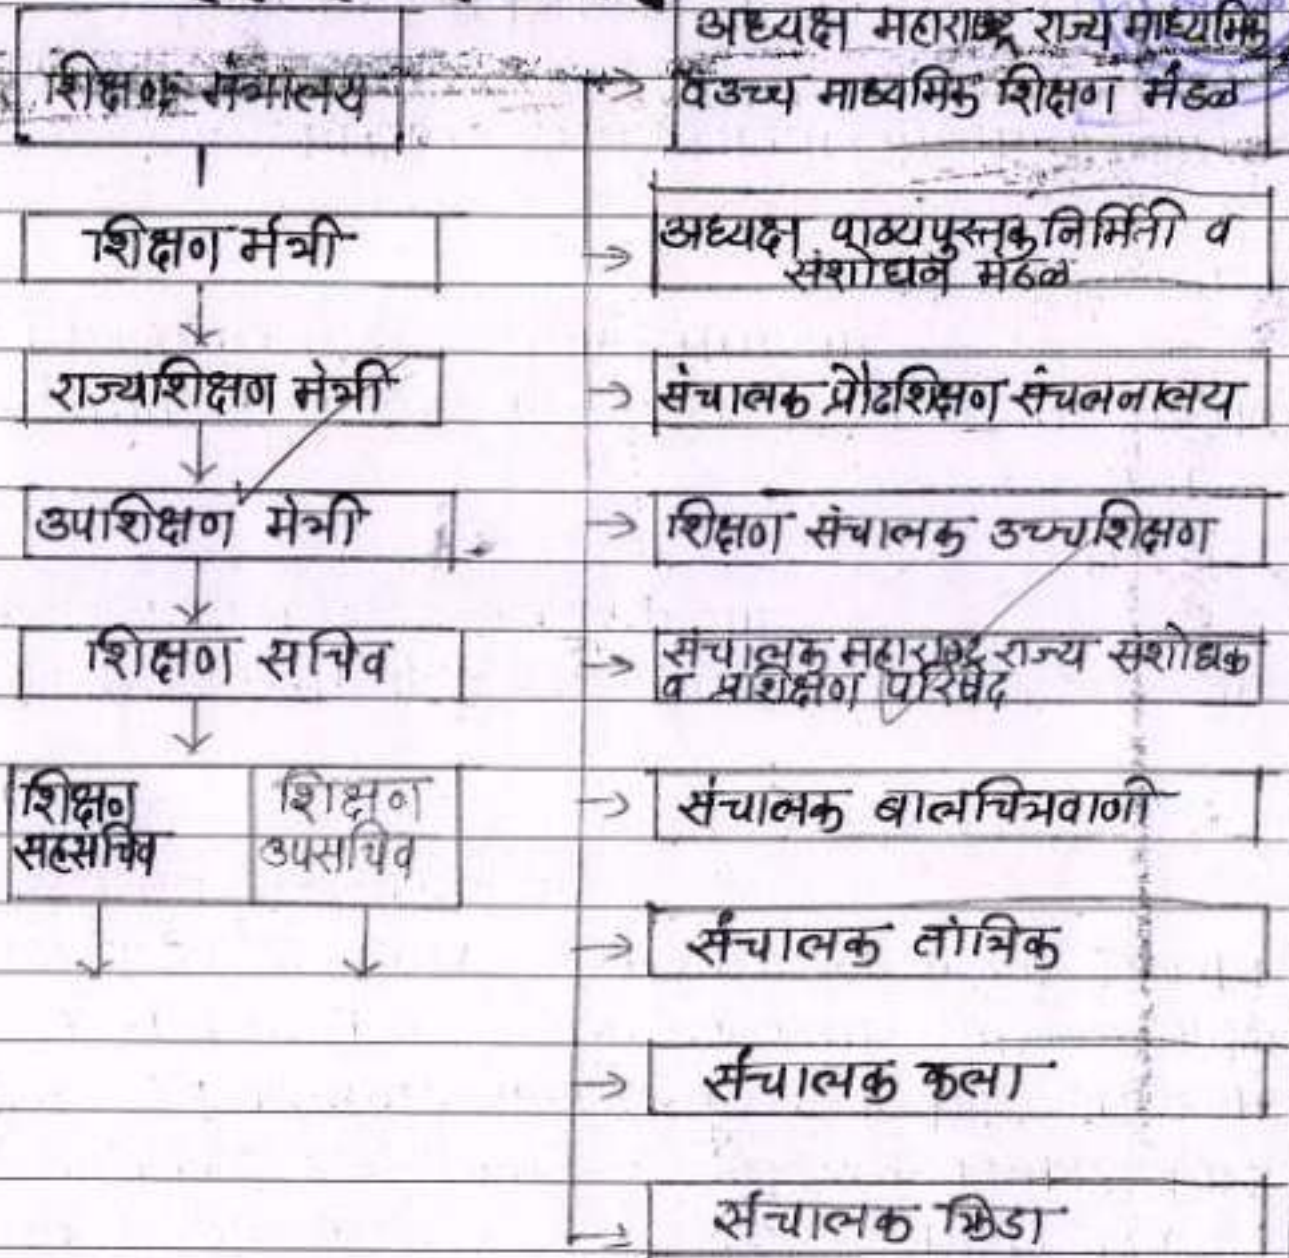 शिक्षण मंत्रालय
शिक्षण मंत्री
राज्यशिक्षण मंत्री
उपशिक्षण मंत्री
शिक्षण सचिव
शिक्षण
सहसचिव
शिक्षण
उपसचिव
अध्यक्ष महाराष्ट्र राज्य माध्यमिक
व उच्च माध्यमिक शिक्षण मंडळ
अध्यक्ष पाठ्यपुस्तक निर्मिती व
संशोधन मंडळ
संचालक प्रौढशिक्षण संचलनालय
शिक्षण संचालक उच्चशिक्षण
संचालक महाराष्ट्र राज्य संशोधक
व प्रशिक्षण परिषद
संचालक बालचित्रवाणी
संचालक तांत्रिक
संचालक कला
संचालक क्रिडा